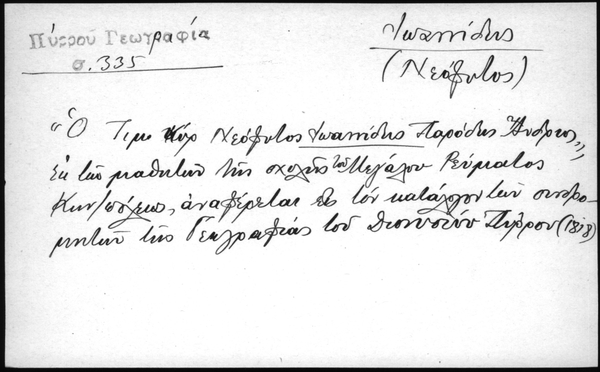 Πύρρου Γεωγραφία
σ. 335
Ἰωαννίδης
(Νεόφυτος)
"Ὁ Τιμ. Κύρ Νεόφυτος Ἰωαννίδης Ἄνδριος,,
ἐκ τῶν μαθητῶν τῆς σχολῆς τοῦ Μεγάλου Ρεύματος
Κων/πόλεως, ἀναφέρεται εἰς τόν κατάλογον τῶν συνδρο-
μητῶν τῆς Γεωγραφίας τοῦ Διονυσίου Πύρρου (1818)